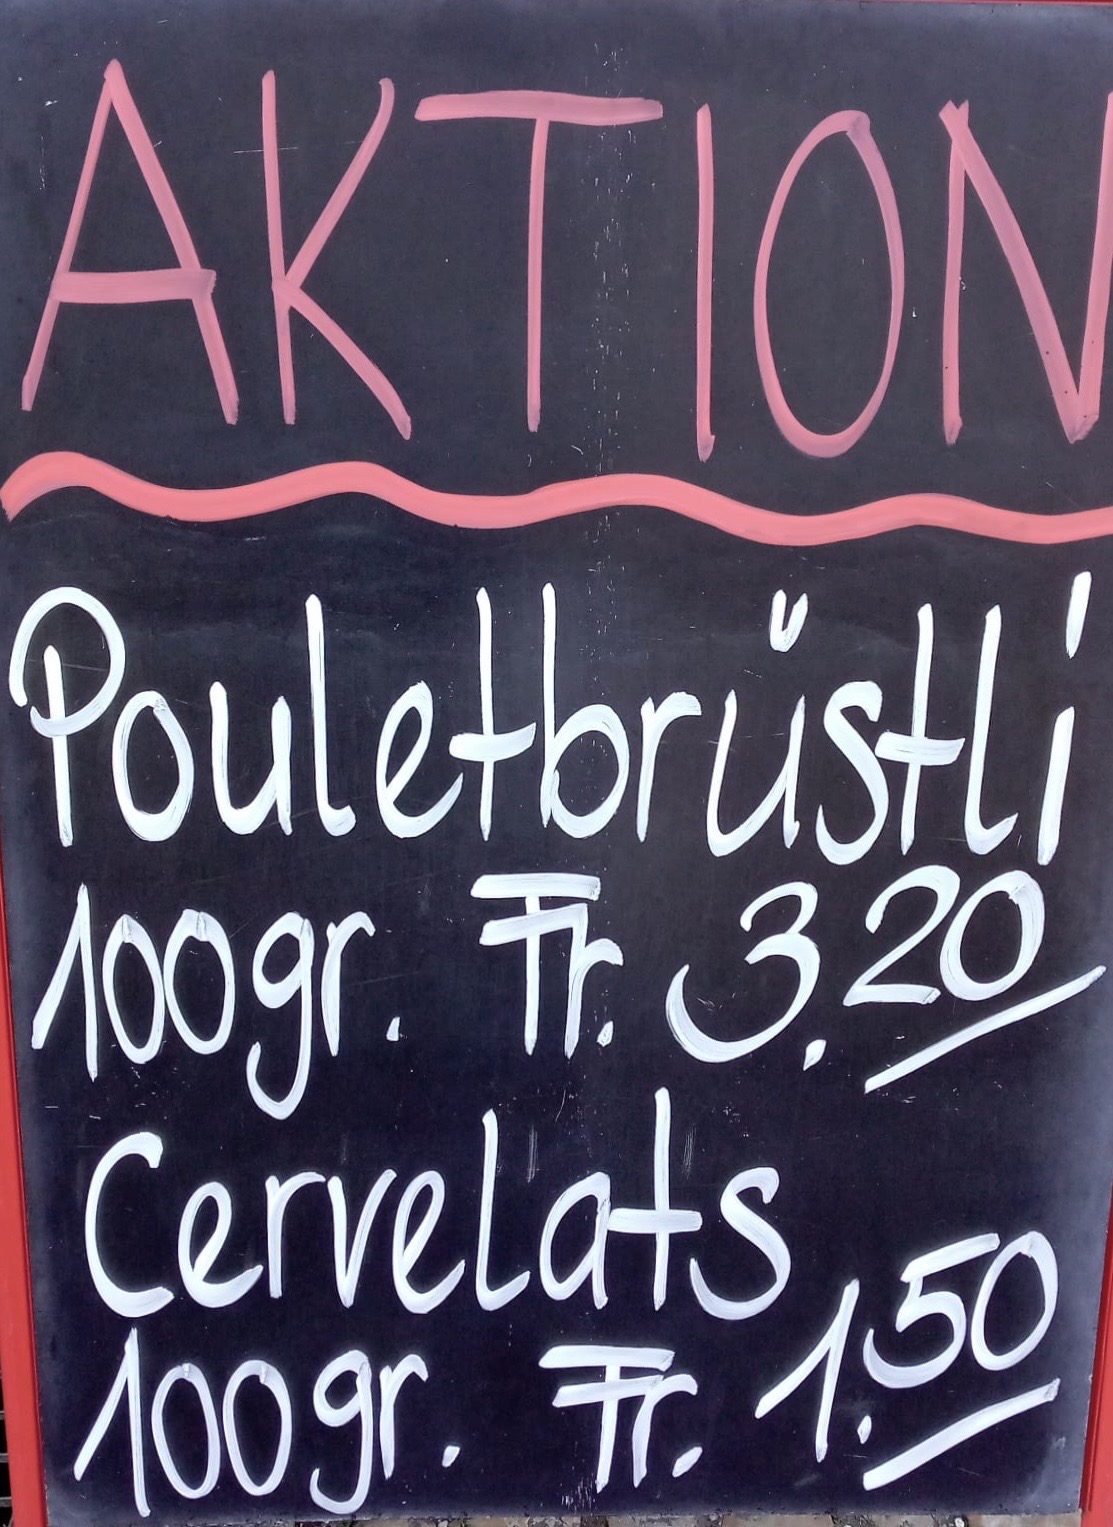 AKTION
Pouletbrüstli
100gr. Fr. 3.20
Cervelats
100gr. Fr. 1.50